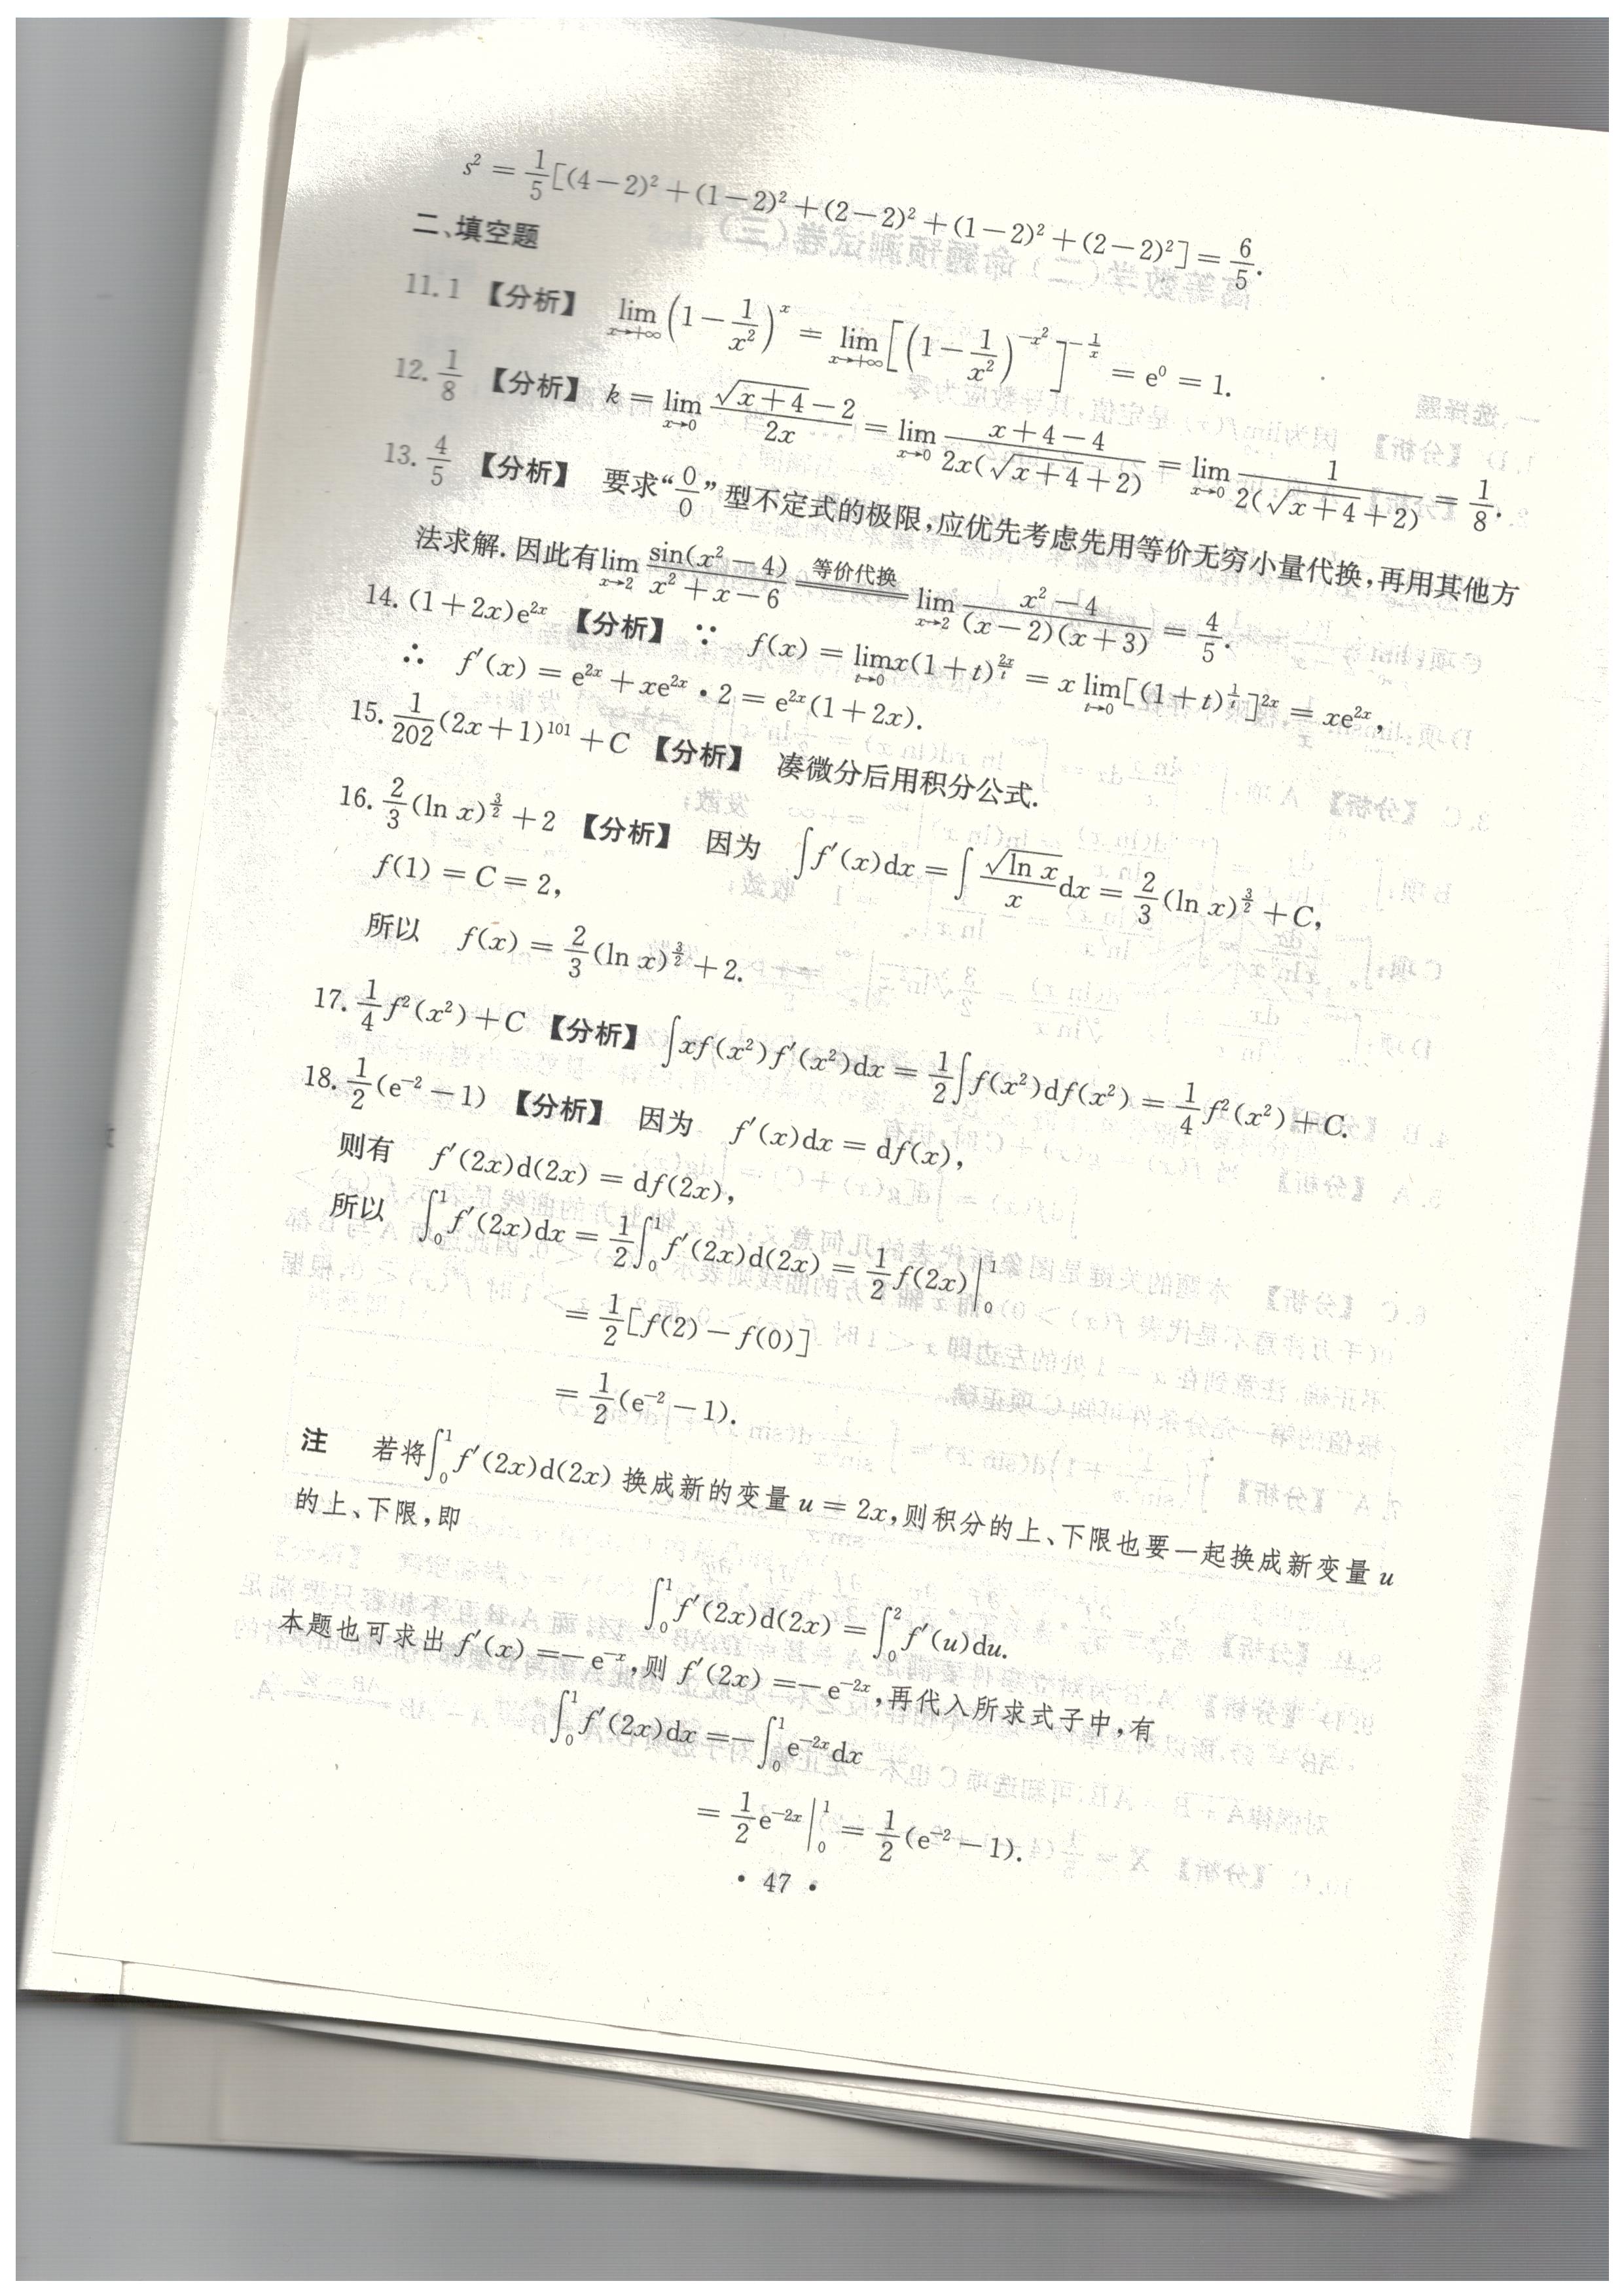 s² = 1/5[(4−2)²+(1−2)²+(2−2)²+(1−2)²+(2−2)²] = 6/5.
二、填空题
11. 1 【分析】 lim_{x→+∞}(1−1/x²)^x = lim_{x→+∞}[(1−1/x²)^{−x²}]^{−1/x} = e⁰ = 1.
12. 1/8 【分析】 k = lim_{x→0} (√(x+4)−2)/(2x) = lim_{x→0} (x+4−4)/(2x(√(x+4)+2)) = lim_{x→0} 1/(2(√(x+4)+2)) = 1/8.
13. 4/5 【分析】 要求“0/0”型不定式的极限,应优先考虑先用等价无穷小量代换,再用其他方
法求解.因此有lim_{x→2} sin(x²−4)/(x²+x−6) =(等价代换)= lim_{x→2} (x²−4)/((x−2)(x+3)) = 4/5.
14. (1+2x)e^{2x} 【分析】 ∵ f(x) = lim_{t→0} x(1+t)^{2x/t} = x lim_{t→0}[(1+t)^{1/t}]^{2x} = xe^{2x},
∴ f′(x) = e^{2x}+xe^{2x}·2 = e^{2x}(1+2x).
15. 1/202(2x+1)^{101}+C 【分析】 凑微分后用积分公式.
16. 2/3(ln x)^{3/2}+2 【分析】 因为 ∫f′(x)dx = ∫(√(ln x)/x)dx = 2/3(ln x)^{3/2}+C,
f(1) = C = 2,
所以 f(x) = 2/3(ln x)^{3/2}+2.
17. 1/4 f²(x²)+C 【分析】 ∫xf(x²)f′(x²)dx = 1/2∫f(x²)df(x²) = 1/4 f²(x²)+C.
18. 1/2(e^{−2}−1) 【分析】 因为 f′(x)dx = df(x),
则有 f′(2x)d(2x) = df(2x),
所以 ∫₀¹f′(2x)dx = 1/2∫₀¹f′(2x)d(2x) = 1/2 f(2x)|₀¹
= 1/2[f(2)−f(0)]
= 1/2(e^{−2}−1).
注 若将∫₀¹f′(2x)d(2x)换成新的变量u = 2x,则积分的上、下限也要一起换成新变量u
的上、下限,即
∫₀¹f′(2x)d(2x) = ∫₀²f′(u)du.
本题也可求出 f′(x) =−e^{−x},则 f′(2x) =−e^{−2x},再代入所求式子中,有
∫₀¹f′(2x)dx =−∫₀¹e^{−2x}dx
= 1/2 e^{−2x}|₀¹ = 1/2(e^{−2}−1).
· 47 ·